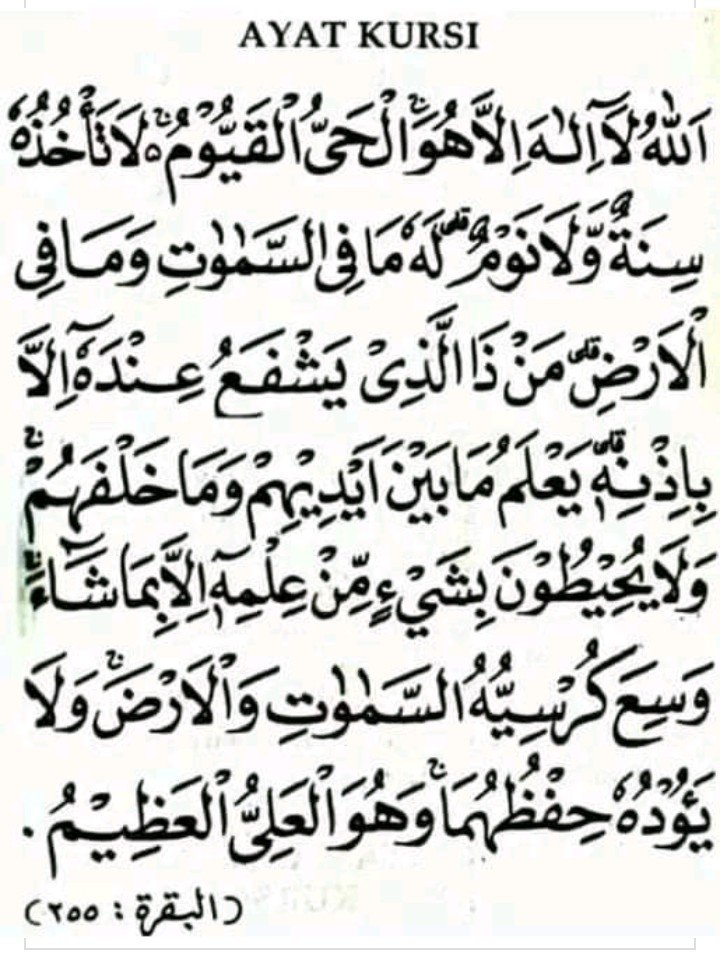 AYAT KURSI
اَللهُ لَآ اِلٰهَ اِلَّا هُوَۚ اَلْحَيُّ الْقَيُّوْمُ ەۚ لَا تَأْخُذُهٗ
سِنَةٌ وَّلَا نَوْمٌۗ لَهٗ مَا فِى السَّمٰوٰتِ وَمَا فِى
الْاَرْضِۗ مَنْ ذَا الَّذِيْ يَشْفَعُ عِنْدَهٗٓ اِلَّا
بِاِذْنِهٖۗ يَعْلَمُ مَا بَيْنَ اَيْدِيْهِمْ وَمَا خَلْفَهُمْۚ
وَلَا يُحِيْطُوْنَ بِشَيْءٍ مِّنْ عِلْمِهٖٓ اِلَّا بِمَا شَآءَۚ
وَسِعَ كُرْسِيُّهُ السَّمٰوٰتِ وَالْاَرْضَۚ وَلَا
يَؤُدُهٗ حِفْظُهُمَاۚ وَهُوَ الْعَلِيُّ الْعَظِيْمُ .
(البقرة : ٢٥٥)